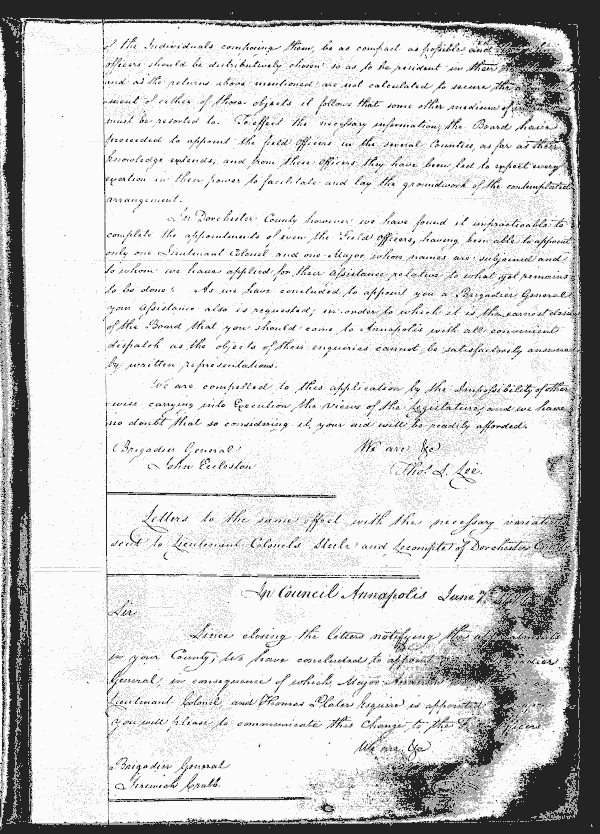 of the Individuals composing them, be as compact as possible and
officers should be distributively chosen so as to be resident in their
and as the returns above mentioned are not calculated to secure the
ment of either of those objects it follows that some other medium of
must be resorted to. To effect the necessary information, the Board have
proceeded to appoint the field officers in the several Counties, as far as their
knowledge extends, and from these officers they have been led to expect every
exertion in their power to facilitate and lay the groundwork of the contemplated
arrangement.
In Dorchester County however we have found it impracticable to
complete the appointments of even the Field officers, having been able to appoint
only one Lieutenant Colonel and one Major whose names are subjoined and
to whom we have applied for their assistance relative to what yet remains
to be done. As we have concluded to appoint you a Brigadier General
your assistance also is requested; in order to which it is the earnest desire
of the Board that you should come to Annapolis with all convenient
dispatch as the objects of their enquiries cannot be satisfactorily answered
by written representations.
We are compelled to this application by the Impossibility of other
wise carrying into Execution the views of the Legislature and we have
no doubt that so considering it, your aid will be readily afforded.
Brigadier General We are &c
John Eccleston Tho. S. Lee.
Letters to the same effect with the necessary
sent to Lieutenant Colonels Steele and Lecompte of Dorchester
In Council Annapolis June 7
Sir
Since closing the letters notifying the
in your County, We have concluded to appoint
General, in consequence of which Major
Lieutenant Colonel, and Thomas Plater Esquire is appointed
you will please to communicate this Change to the
We are &c
Brigadier General
Jeremiah Crabb.